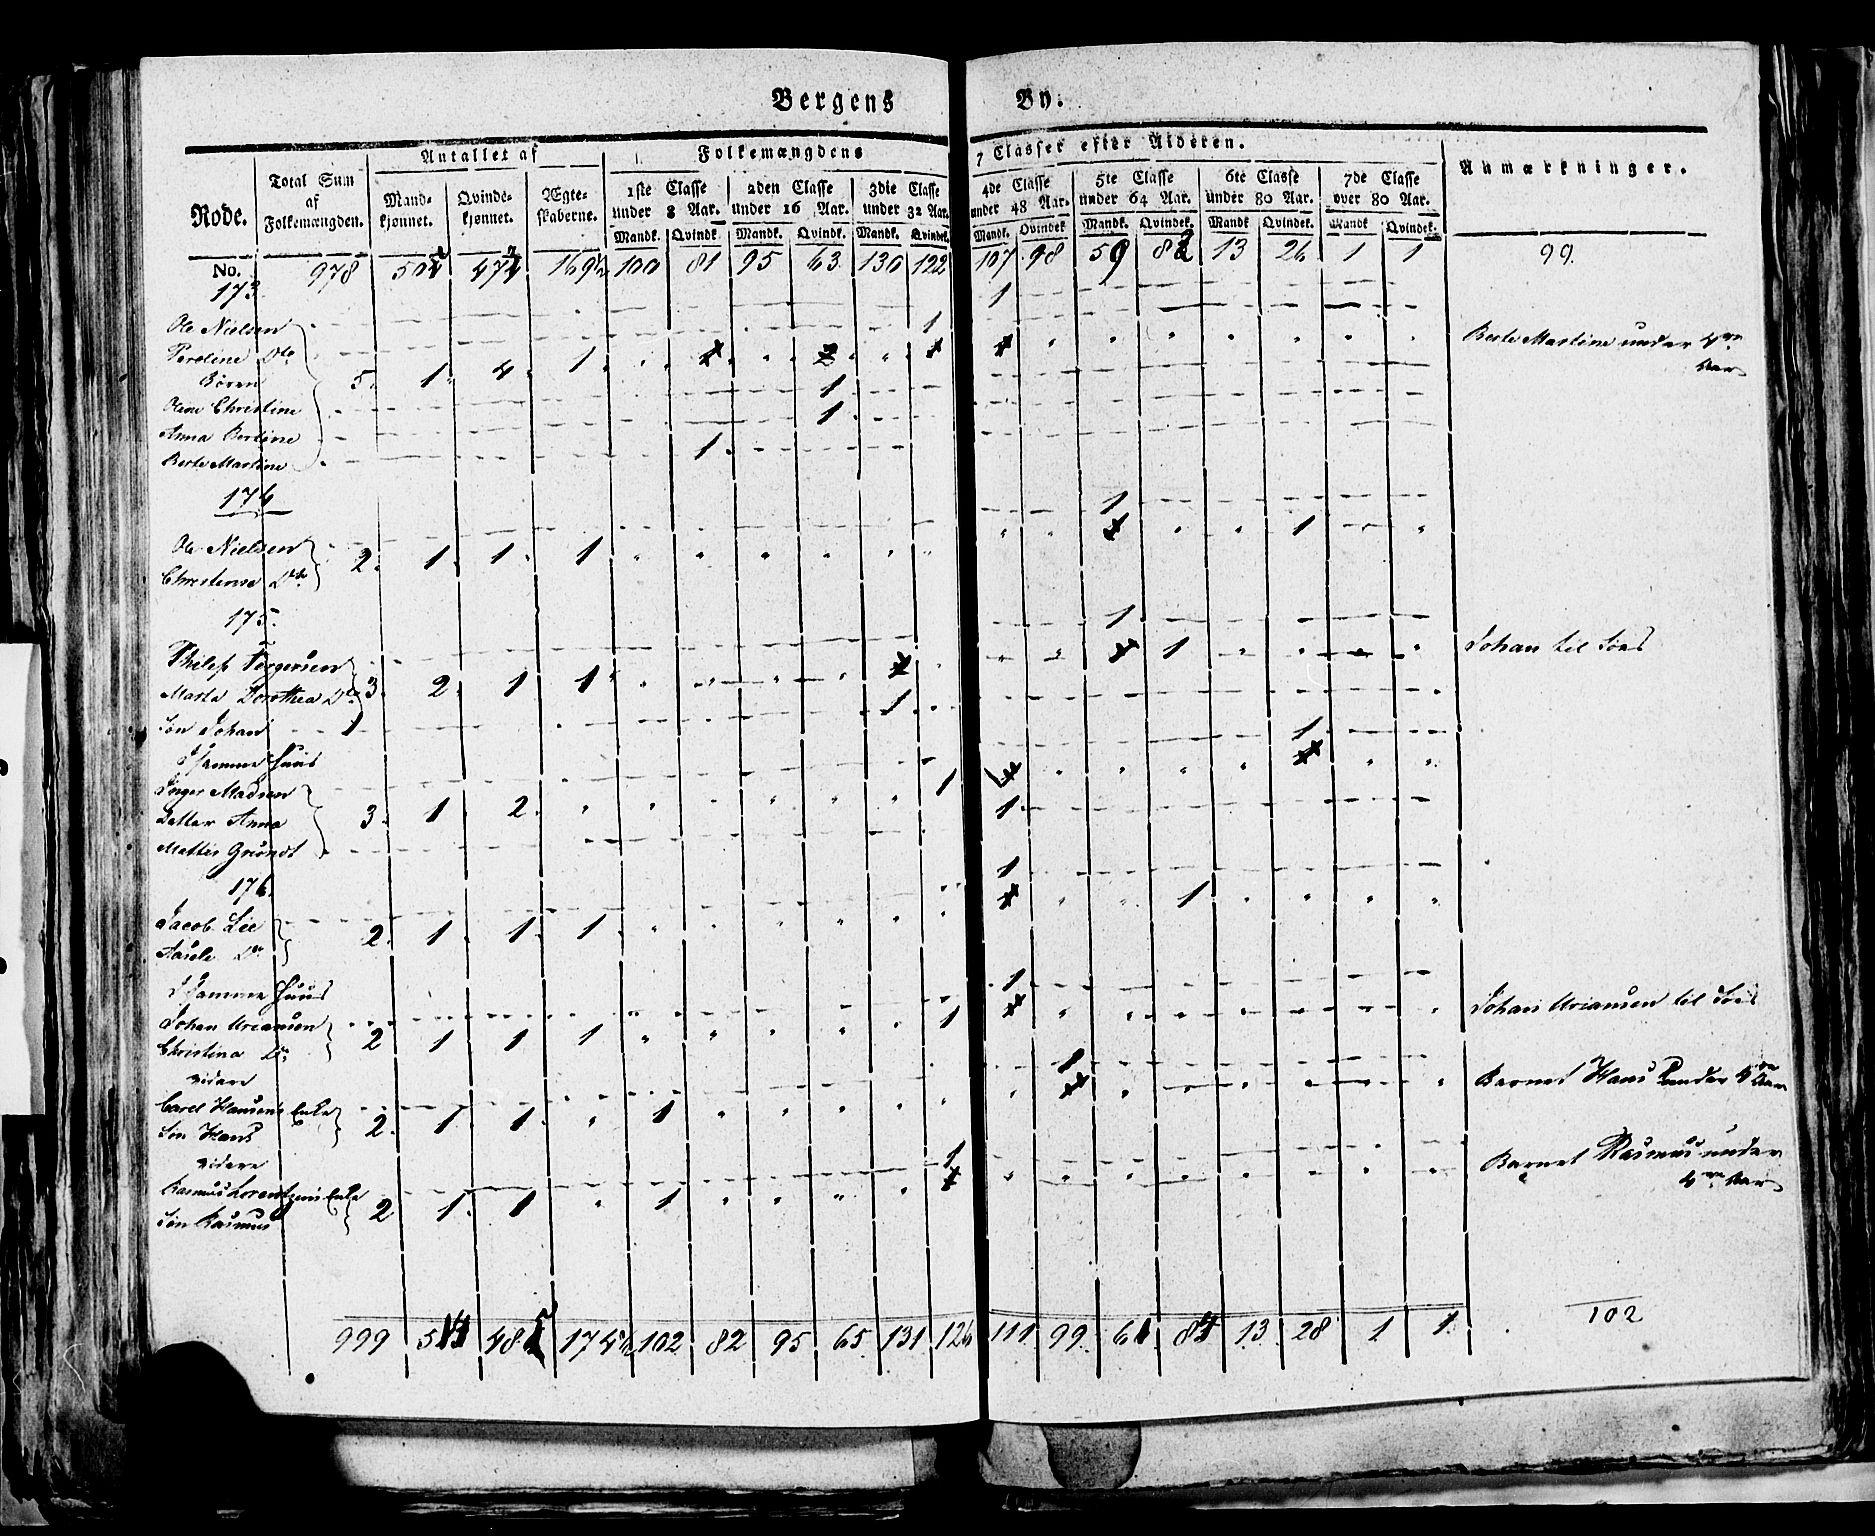 Bergens By.
Rode. Total Sum af Folkemængden. Antallet af Mandkjønnet. Qvindekjønnet. Ægteskaberne. Folkemængdens 7 Classer efter Alderen. Anmærkninger.
1ste Classe under 8 Aar. 2den Classe under 16 Aar. 3die Classe under 32 Aar. 4de Classe under 48 Aar. 5te Classe under 64 Aar. 6te Classe under 80 Aar. 7de Classe over 80 Aar.
Mandk. Qvindk. Mandk. Qvindk. Mandk. Qvindek. Mandk. Qvindek Mandk. Qvindek. Mandk Qvindek. Mandk Qvindek.
No. 978 169½ 100 81 95 63 130 122 107 98 59 82 13 26 1 1 99.
173. 1
Ole Nielsen 1
Do 5. 1 4. 1 Berte Martine under 4re Aar
Søren 1
Christine 1
Anna Bertine 1
Berte Martine
174 1
Ole Nielsen 2. 1 1 1 1
Christense Do
175. 1
Philip Torgersen 3. 2 1 1 1 Johan til Søes
Marta Dorothea Do 1
Søn Johan 1 1
I samme Huus
Inger Madsen 3. 1 2. 1
Datter Anna 1
Mattis Grundt 1
176.
Jacob Lie 2. 1 1 1 1
Do
I samme Huus 1
Johan Uriansen 2 1 1 1 1 Johan Uriansen til Søes
Christina Do 1
videre
Carel Hansens Enke 2. 1 1 1 Barnet Hans under 4re Aar
Søn Hans
videre 1
Rasmus Lorentzens Enke 2 1 1 1 Barnet Rasmus under 4re Aar
Søn Rasmus
999 174½ 102 82 95 65 131 126 111 99 61 84 13 28 1 1 102